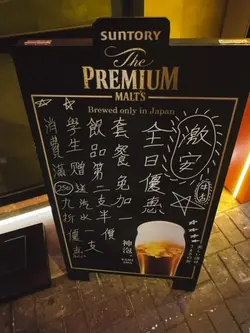 SUNTORY
The
PREMIUM
MALT'S
Brewed only in Japan
激安
全日優惠
套餐免加一
飲品第二支半價
學生贈送汽水一支
消費滿250九折優惠
神泡